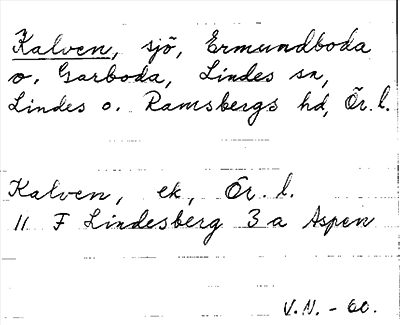 Kalven, sjö, Ermundboda
o. Garboda, Lindes sn,
Lindes o. Ramsbergs hd, Ör. l.
Kalven, ek, Ör. l.
11 F Lindesberg 3 a Aspen
V.N. - 60.